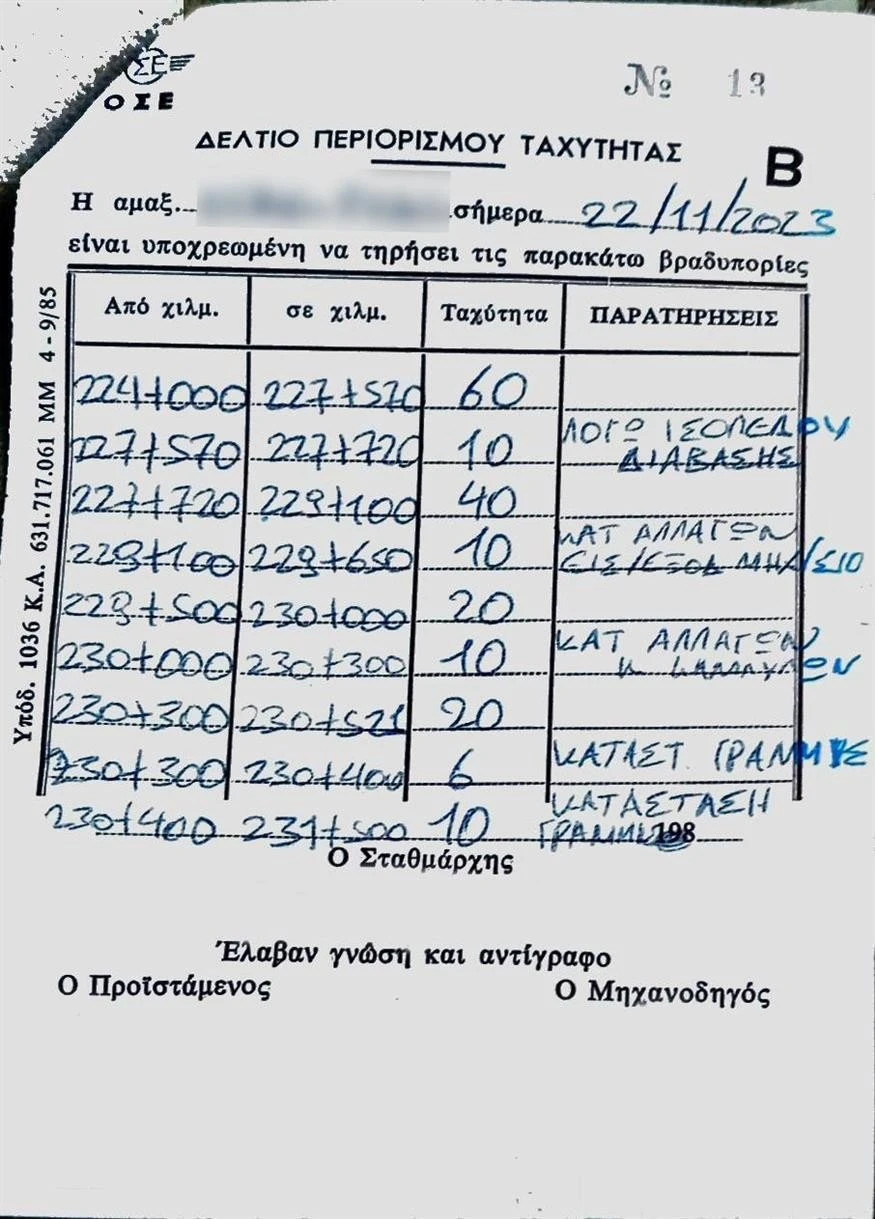 ΣΕ
ΟΣΕ
№ 13
ΔΕΛΤΙΟ ΠΕΡΙΟΡΙΣΜΟΥ ΤΑΧΥΤΗΤΑΣ
Β
Η αμαξ... σήμερα 22/11/2023
είναι υποχρεωμένη να τηρήσει τις παρακάτω βραδυπορίες
Από χιλμ. σε χιλμ. Ταχύτητα ΠΑΡΑΤΗΡΗΣΕΙΣ
224+000 227+570 60
227+570 227+720 10 ΛΟΓΩ ΙΣΟΠΕΔΟΥ
ΔΙΑΒΑΣΗΣ
227+720 229+100 40
229+100 229+650 10 ΚΑΤ ΑΛΛΑΓΩΝ
ΕΙΣ/ΕΞΟΔ ΜΗΧ/ΣΙΟ
229+500 230+000 20
230+000 230+300 10 ΚΑΤ ΑΛΛΑΓΩΝ
Κ ΚΑΜΠΥΛΩΝ
230+300 230+521 20
230+300 230+400 6 ΚΑΤΑΣΤ. ΓΡΑΜΜΗΣ
230+400 231+500 10 ΚΑΤΑΣΤΑΣΗ
ΓΡΑΜΜΗΣ 198
Ο Σταθμάρχης
Έλαβαν γνώση και αντίγραφο
Ο Προϊστάμενος Ο Μηχανοδηγός
Υπόδ. 1036 Κ.Α. 631.717.061 ΜΜ 4-9/85